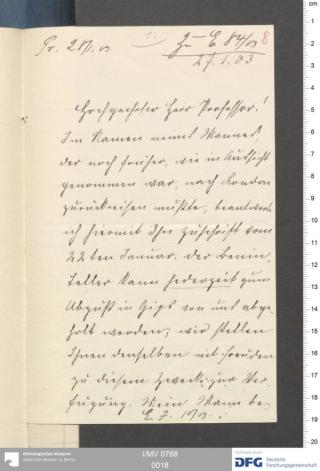 Pr. 28/1. 03.
1.
Zu E. 84/03
8
27.1.03
Hochgeehrter Herr Professor!
Im Namen meines Mannes,
der noch früher, wie in Aussicht
genommen war, nach London
zurückreisen mußte, beantworte
ich hiermit Ihre Zuschrift vom
22ten Januar. Der Benin-
Teller kann jederzeit zum
Abguß in Gips von uns abge-
holt werden, wir stellen
Ihnen denselben mit Freuden
zu diesem Zweck zur Ver-
fügung. Mein Mann be-
Ethnologisches Museum
Staatliche Museen zu Berlin
I/MV 0768
0018
gefördert durch
DFG Deutsche
Forschungsgemeinschaft
cm
1
2
3
4
5
6
7
8
9
10
11
12
13
14
15
16
17
18
19
20